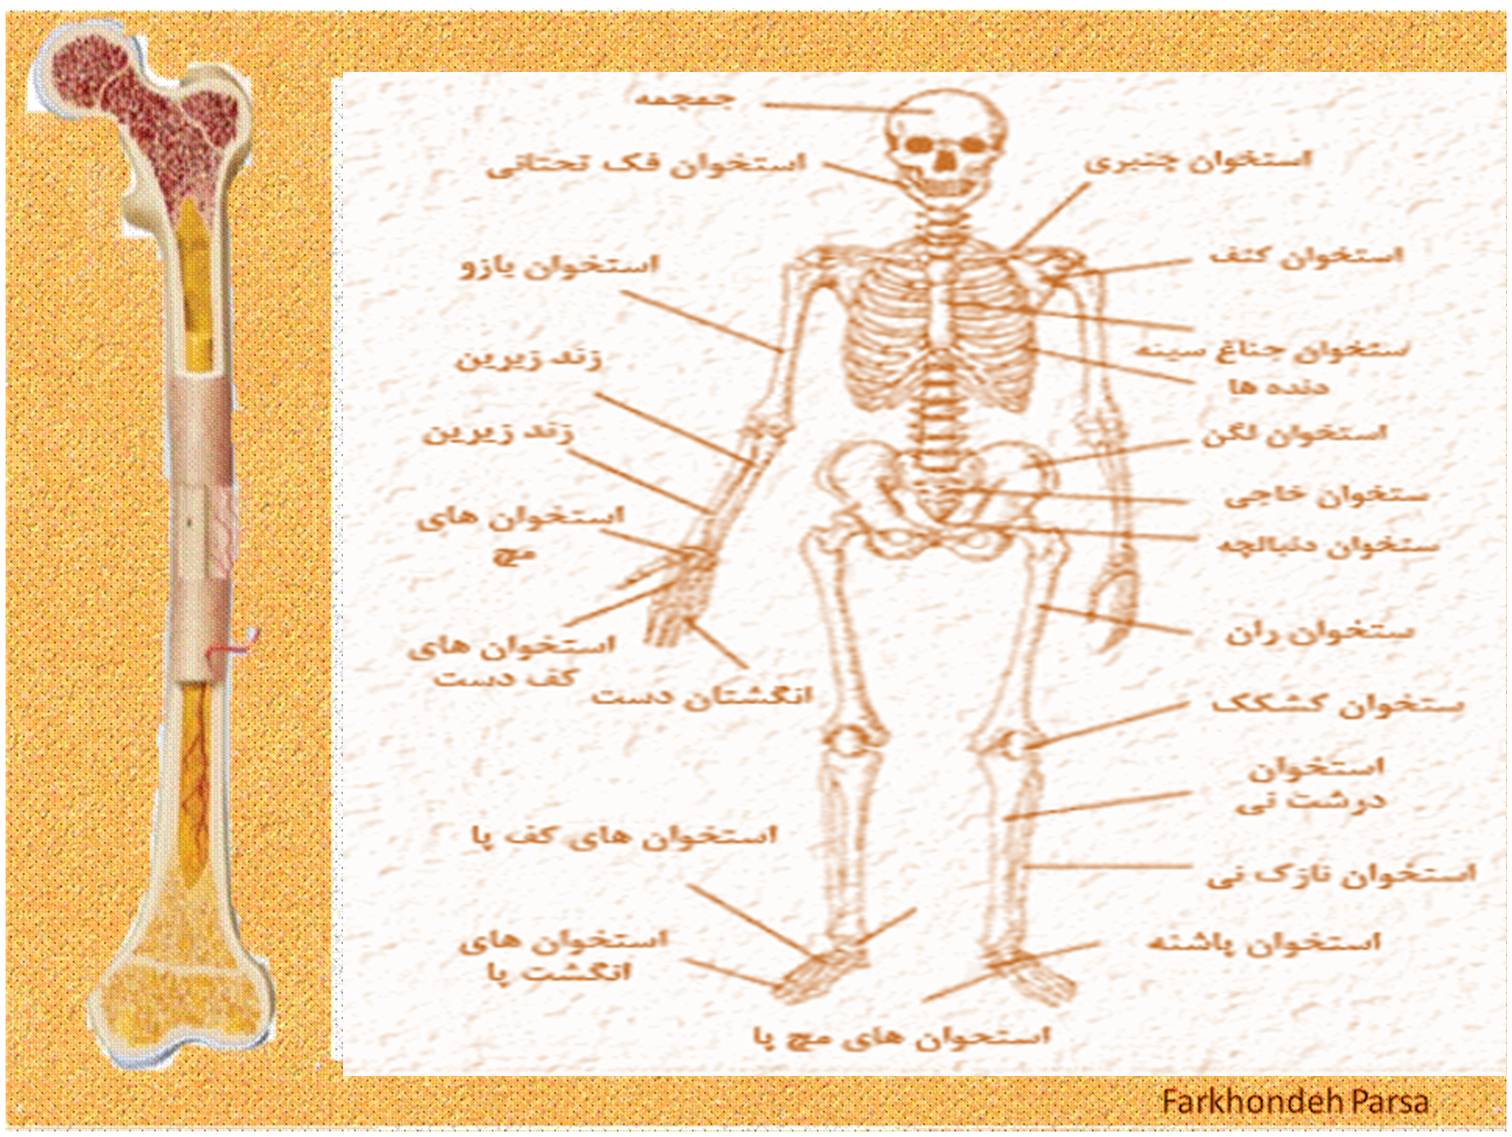 جمجمه
استخوان فک تحتانی
استخوان چنبری
استخوان بازو
استخوان کتف
زند زیرین
ستخوان جناغ سینه
دنده ها
زند زیرین
استخوان لگن
استخوان های
مچ
ستخوان خاجی
ستخوان دنبالچه
استخوان های
کف دست
انگشتان دست
ستخوان ران
ستخوان کشکک
استخوان
درشت نی
استخوان های کف پا
استخوان نازک نی
استخوان های
انگشت پا
استخوان پاشنه
استخوان های مچ پا
Farkhondeh Parsa